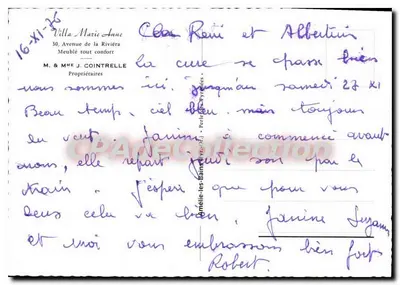 16-XI-76
Villa Marie-Anne
30, Avenue de la Riviéra
Meublé tout confort
M. & Mme J. COINTRELLE
Propriétaires
René et Albertine
la cure se passe bien
nous sommes ici jusqu'au samedi 27 XI
Beau temps, ciel bleu mais toujours
du vent. Janine à commencé avant
nous, elle repart jeudi soir par le
train. J'espère que pour vous
deux cela va bien. Janine Suzanne
et moi vous embrassons bien fort
Robert.
Amélie-les-Bains
CPA Collection